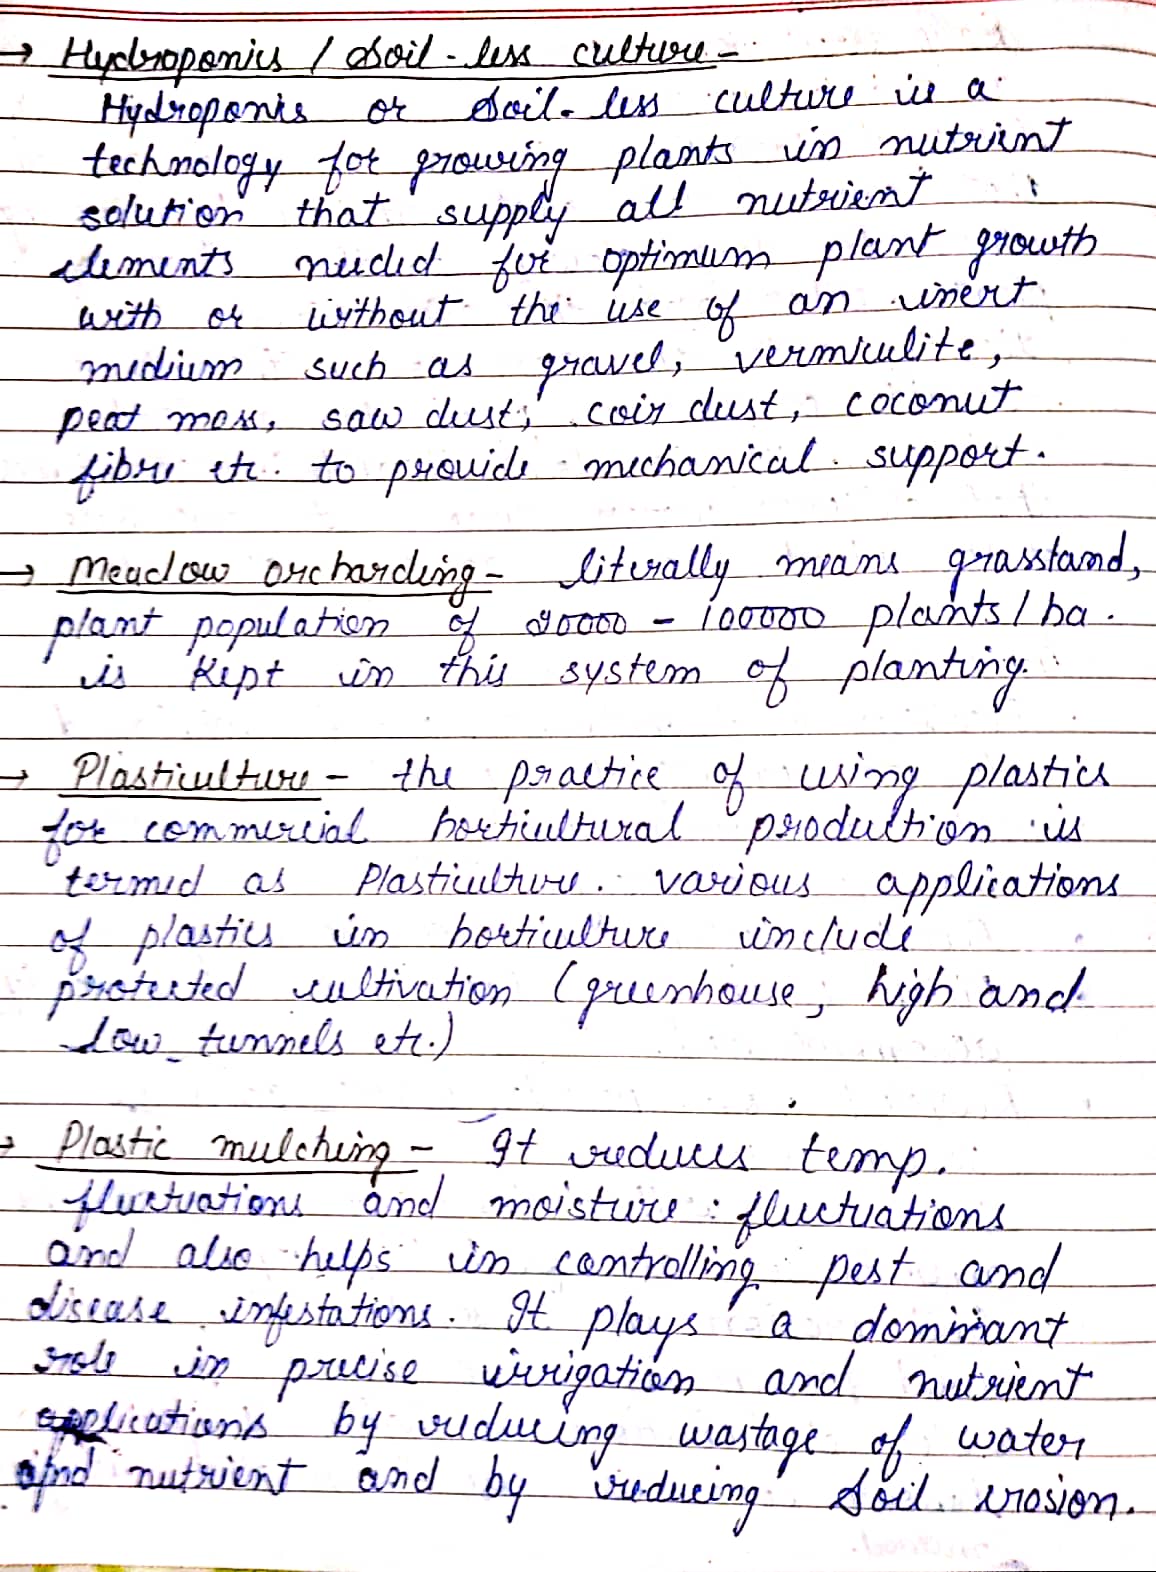 → Hydroponics / Soil-less culture –
Hydroponis or Soil-less culture is a
technology for growing plants in nutrient
solution that supply all nutrient
elements needed for optimum plant growth
with or without the use of an inert
medium such as gravel, vermiculite,
peat moss, saw dust, coir dust, coconut
fibre etc. to provide mechanical support.
→ Meadow orcharding – literally means grassland,
plant population of 20000 – 100000 plants/ha.
is kept in this system of planting.
→ Plasticulture – the practice of using plastics
for commercial horticultural production is
termed as Plasticulture. various applications
of plastics in horticulture include
protected cultivation (greenhouse, high and
low tunnels etc.)
→ Plastic mulching – It reduces temp.
fluctuations and moisture fluctuations
and also helps in controlling pest and
disease infestations. It plays a dominant
role in precise irrigation and nutrient
applications by reducing wastage of water
and nutrient and by reducing soil erosion.